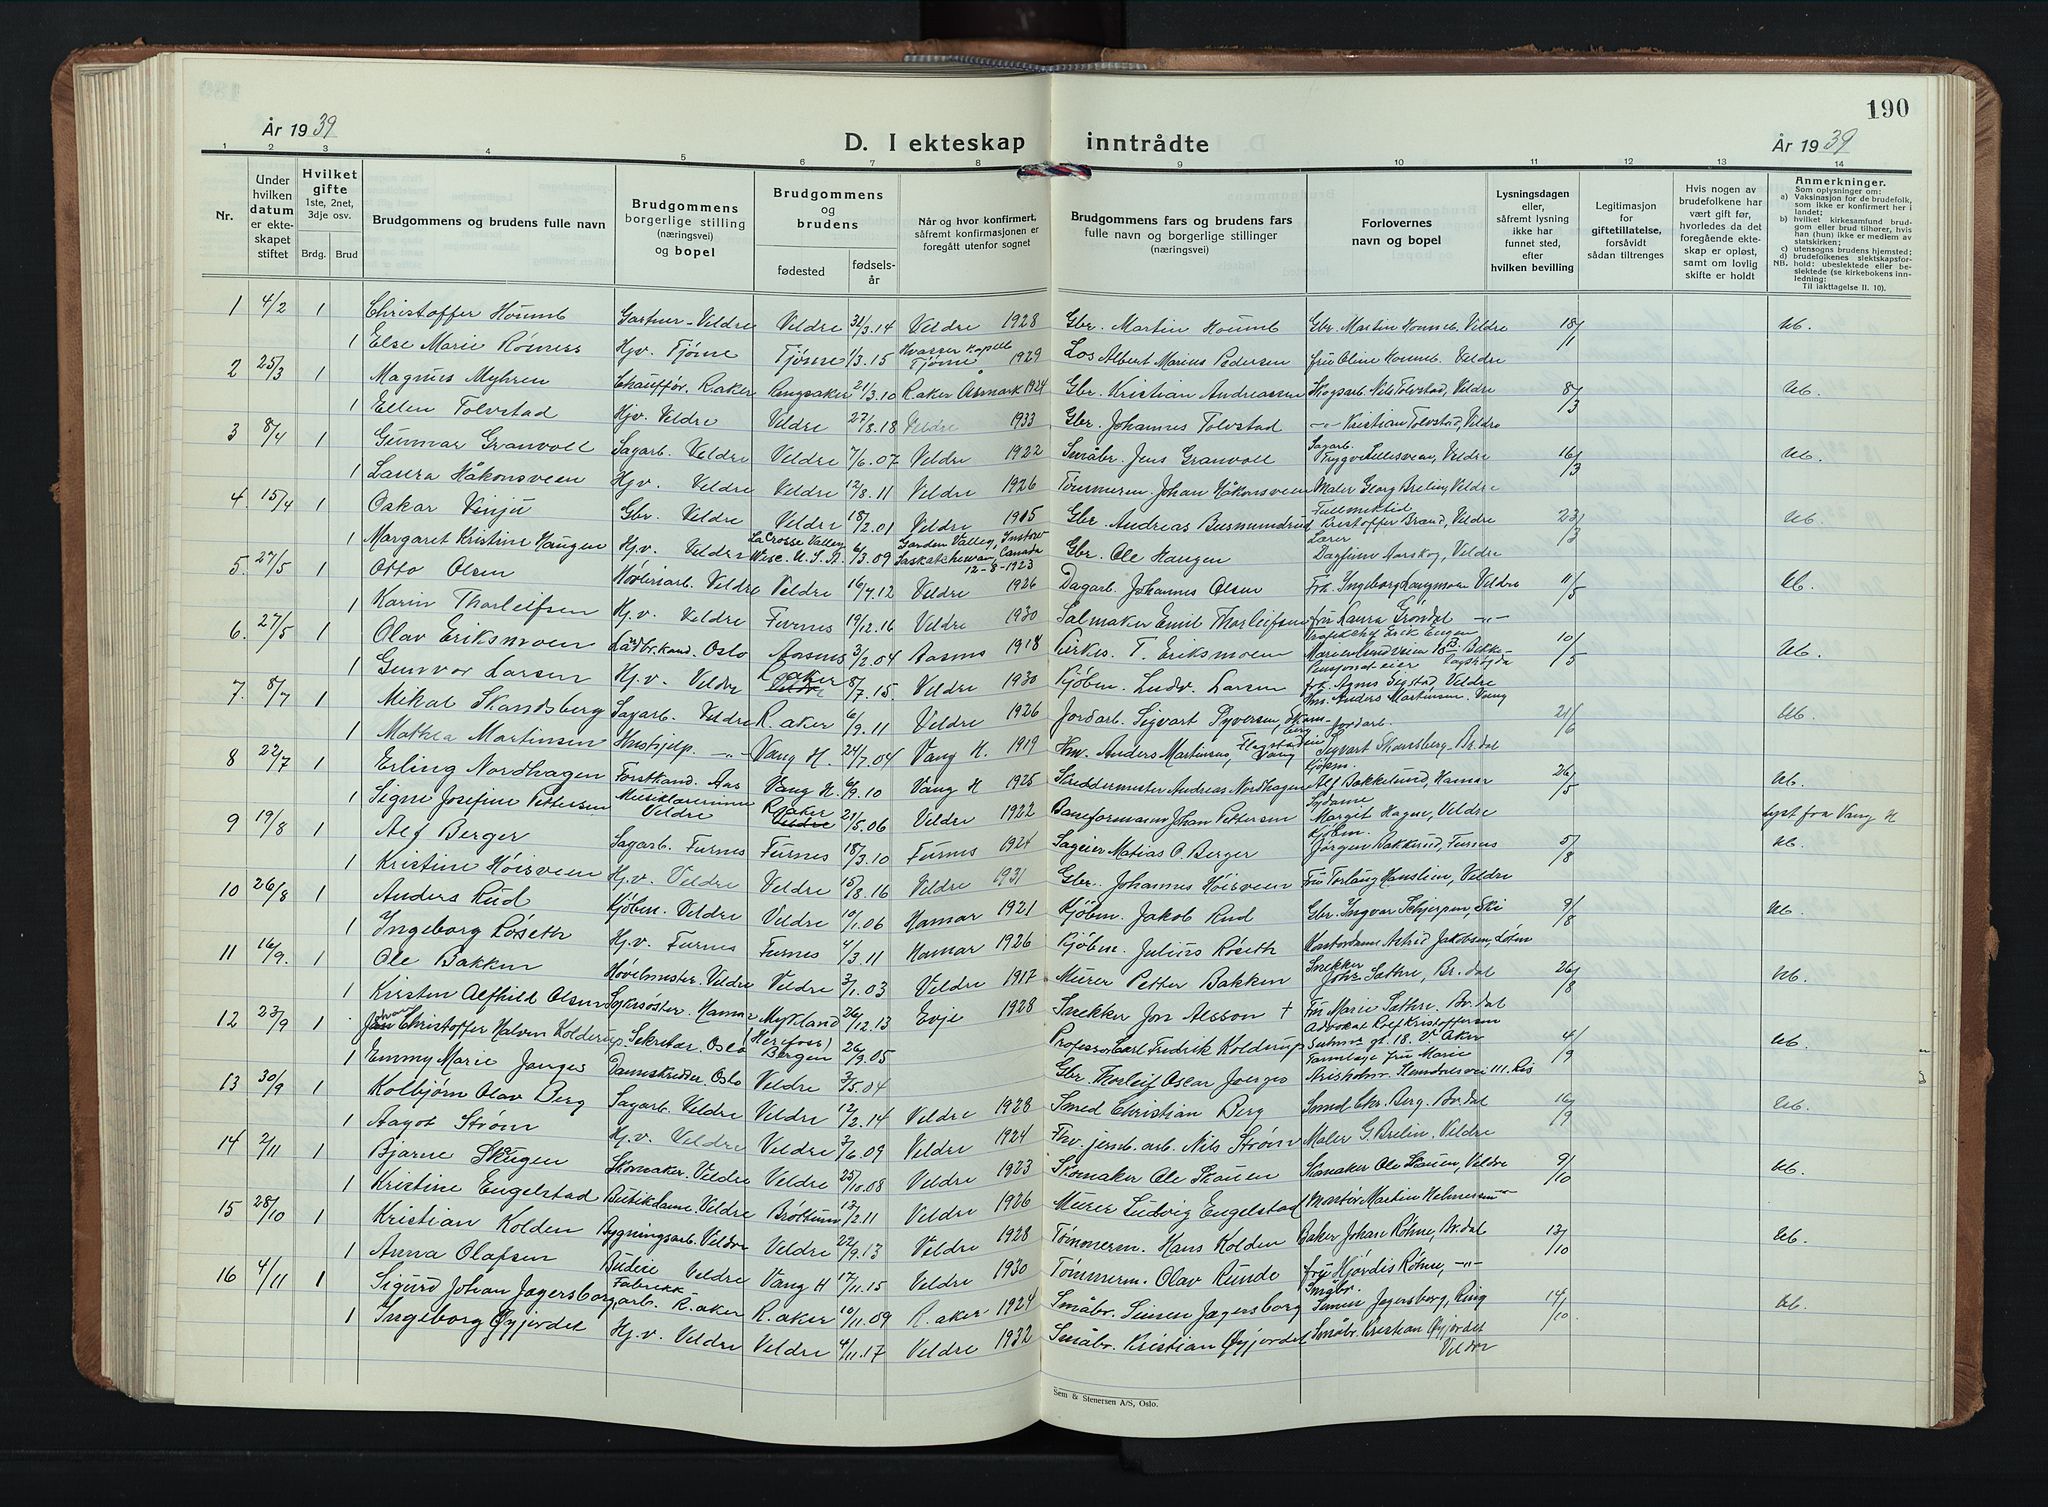 190
År 1939
D. I ekteskap inntrådte
År 1939
1 2 3 4 5 6 7 8 9 10 11 12 13 14
Nr.
Under hvilken datum er ekteskapet stiftet
Hvilket gifte 1ste, 2net, 3dje osv.
Brdg. Brud
Brudgommens og brudens fulle navn
Brudgommens borgerlige stilling (næringsvei) og bopel
Brudgommens og brudens
fødested
fødselsår
Når og hvor konfirmert, såfremt konfirmasjonen er foregått utenfor sognet
Brudgommens fars og brudens fars fulle navn og borgerlige stillinger (næringsvei)
Forlovernes navn og bopel
Lysningsdagen eller, såfremt lysning ikke har funnet sted, efter hvilken bevilling
Legitimasjon for giftetillatelse, forsåvidt sådan tiltrenges
Hvis nogen av brudefolkene har vært gift før, hvorledes da det foregående ekteskap er opløst, samt om lovlig skifte er holdt
Anmerkninger.
Som oplysninger om:
a) Vaksinasjon for de brudefolk, som ikke er konfirmert her i landet;
b) hvilket kirkesamfund brudgom eller brud tilhører, hvis han (hun) ikke er medlem av statskirken;
c) utensogns brudens hjemsted;
d) brudefolkenes slektskapsforhold: ubeslektede eller beslektede (se kirkebokens innledning:
NB.
Til iakttagelse II. 10).
1 4/2 1 Christoffer Houmb Gartner - Veldre Veldre 31/3.14 Veldre 1928 Gbr. Martin Houmb Gbr. Martin Houmb, Veldre 18/1 Ub.
1 Else Marie Rösness Hj.v. Tjöme Tjöme 1/3.15 Hvasser Kapell Tjöme 1929 Los Albert Marius Pedersen fru Oline Houmb, Veldre
2 25/3 1 Magnus Myhren Chauffør. R.aker Ringsaker 21/3.10 R.aker Åsmark 1924 Gbr. Kristian Andreassen Skogsarb. Nils Tolvstad, Veldre 8/3 Ub.
1 Ellen Tolvstad Hjv. Veldre Veldre 27/8.18 Veldre 1933 Gbr. Johannes Tolvstad -"- Kristian Tolvstad, Veldre
3 8/4 1 Gunnar Granvoll Sagarb. Veldre Veldre 7/6.07 Veldre 1922 Småbr. Jens Granvoll Sagarb. Trygve Lillesveen, Veldre 16/3 Ub.
1 Laura Håkonsveen Hj.v. Veldre Veldre 12/8.11 Veldre 1926 Tömmerm. Johan Håkonsveen Maler Georg Brelin, Veldre
4. 15/4 1 Oskar Vinju Gbr. Veldre Veldre 18/2.01 Veldre 1915 Gbr. Andreas Fullmektig Kristoffer Brand, Veldre 23/3 Ub.
1 Margaret Kristine Haugen Hj.v. Veldre La Crosse Valley, Wisc. U.S.A 6/3.09 Garden Valley, Saskatchewan, Canada 12-8-1923 Gbr. Ole Haugen Lærer Dagfinn Norskog, Veldre
5. 27/5 1 Otto Olsen Høvleriarb. Veldre Veldre 16/7.12 Veldre 1926 Dagarb. Johannes Olsen Frk. Ingeborg Langmoen Veldre 11/5 Ub.
1 Karin Thorleifsen Hj.v. Veldre Furnes 19/12.16 Veldre 1930 Salmaker Emil Thorleifsen fru Laura Gröndal -"-
6. 27/5 1 Olav Eriksmoen Landbr.kand. Oslo 3/2.04 1918 Kirkes. T. Eriksmoen Trafikchef Erik Engen 10/5 Ub.
1 Gunvor Larsen Hj.v. Veldre R.aker Veldre 8/7.15 Veldre 1930 Kjöbm. Ludv. Larsen Pensjonateier frk. Agnes Segstad, Veldre
7. 8/7 1 Mikal Skandsberg Sagarb. Veldre R.aker 6/9.11 Veldre 1926 Jordarb. Sigvart Syversen Hm. Anders Martinsen. Vang 21/6 Ub.
1 Mathea Martinsen Hushjelp. -"- Vang H. 24/7.04 Vang H. 1919 Hm. Anders Martinsen, Vang Jordarb. Sigvart Skansberg - Br.dal
8 22/7 1 Erling Nordhagen Forstkand. Aas Vang H. 6/9.10 Vang H 1925 Skreddermester Andreas Nordhagen Kjöbm. Alf Bakkelund, Hamar 26/5 Ub.
1 Signe Josefine Pettersen Musiklærerinne Veldre R.aker Veldre 21/5.06 Veldre 1922 Baneformann Johan Pettersen Sydame Margit Hagen, Veldre lyst fra Vang H
9 19/8 1 Alf Berger Sagarb. Furnes Furnes 18/3.10 Furnes 1924 Sageier Matias O. Berger Kjöbm. Jörgen Bakkerud, Furnes 5/8 Ub.
1 Kristine Höisveen Hj.v. Veldre Veldre 15/8.16 Veldre 1931 Gbr. Johannes Höisveen Fru Torlaug Hanslien, Veldre
10 26/8 1 Anders Rud Kjöbm. Veldre Veldre 10/1.06 Hamar 1921 Kjöbm. Jakob Rud Gbr. Ingvar Schjerpen, Ski 9/8 Ub.
1 Ingeborg Röseth Hj.v. Furnes Furnes 4/3.11 Hamar 1926 Kjöbm. Julius Röseth Kontordame Astrid Jakobsen, Löten
11 16/9. 1 Ole Bakken Høvelmester. Veldre Veldre 3/1.03 Veldre 1917 Murer Petter Bakken Snekker Johs. Sathre, Br.dal 26/8 Ub.
1 Kirsten Alfhild Olsen Sykesöster. Hamar Mykland (Herefoss) 26/12.13 Evje 1928 Snekker Jon Alsson + Fru Marie Sathre. Br.dal
12 23/9 1 Jan Johan Christoffer Halven Kolderup Sekretær. Oslo Bergen 26/9.05 Professor Carl Fredrik Kolderup Advokat Rolf Kristoffersen 18. V. Aker 4/9 Ub.
1 Emmy Marie Janges Dameskredder Oslo Veldre 3/5.04 Gbr. Thorleif Oscar Joerges Tannlege fru Marie
13 30/9 1 Kolbjörn Olav Berg Sagarb. Veldre Veldre 12/2.14 Veldre 1928 Smed Christian Berg Smed Chr. Berg. Br.dal 16/9 Ub.
1 Aagot Ström Hj.v. Veldre Veldre 3/6.09 Veldre 1924 Fhv. jernb. arb. Nils Ström Maler G. Brelin. Veldre
14 2/11 1 Bjarne Skugen Skomaker. Veldre Veldre 25/10.08 Veldre 1923 Skomaker Ole Skauen Skomaker Ole Skauen, Veldre 9/10 Ub.
1 Kristine Engelstad Butikkdame. Veldre Bröttum 13/2.11 Veldre 1926 Murer Ludvig Engelstad Montör Martin Helmersen -"-
15 28/10 1 Kristian Kolden Bygningsarb. Veldre Veldre 22/9.13 Veldre 1928 Tömmerm. Hans Kolden Baker Johan Röhne, Br.dal 13/10 Ub.
1 Anna Olafsen Budeie Veldre Vang H 17/11.15 Veldre 1930 Tömmerm. Olav Runde fru Hjördis Röhne, -"-
16 4/11 1 Sigurd Johan Jagersborg Fabrikkarb. R.aker R.aker 10/11.09 R.aker 1924 Småbr. Simen Jagersborg Småbr. Simen Jagersborg, Ring 14/10 Ub.
1 Ingeborg Öyjordet Hj.v. Veldre Veldre 4/11.17 Veldre 1932 Småbr. Kristian Öyjordet Småbr. Kristian Öyjordet Veldre
Sem & Stenersen A/S, Oslo.